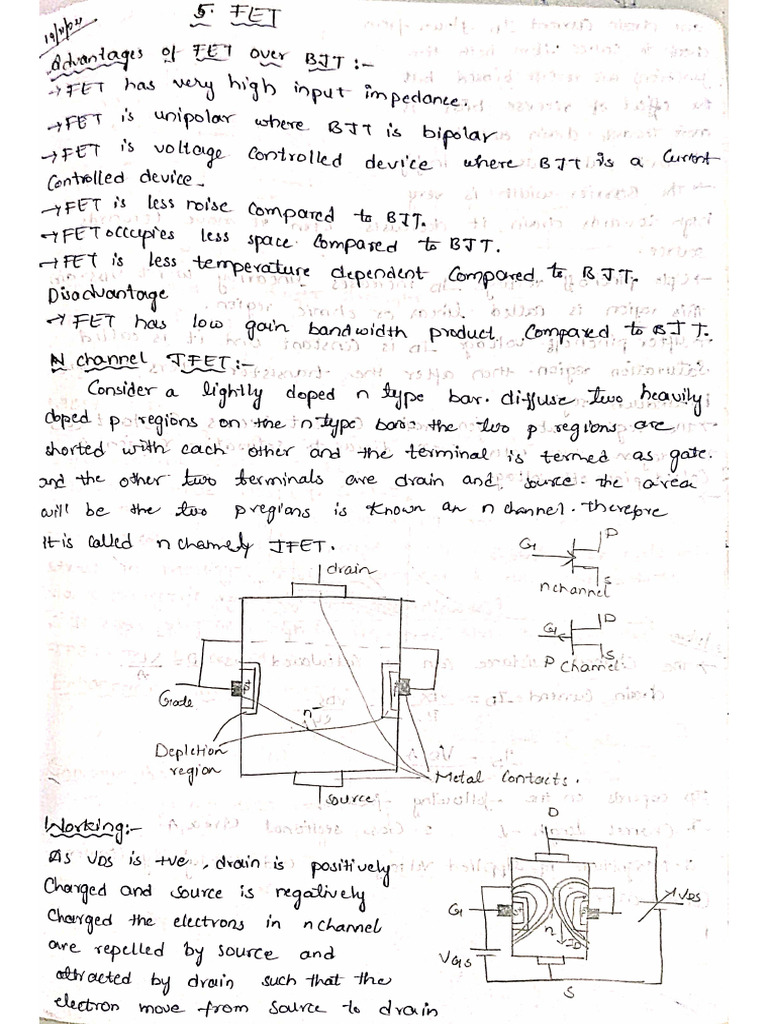 5. FET
Advantages of FET over BJT :-
→ FET has very high input impedance.
→ FET is unipolar where BJT is bipolar
→ FET is voltage controlled device where BJT is a current
Controlled device.
→ FET is less noise compared to BJT.
→ FET occupies less space compared to BJT.
→ FET is less temperature dependent compared to BJT.
Disadvantage
→ FET has low gain bandwidth product compared to BJT.
N channel JFET :-
Consider a lightly doped n type bar. diffuse two heavily
doped p regions on the n type bar. the two p regions are
shorted with each other and the terminal is termed as gate.
and the other two terminals are drain and source. the area
will be the two pregions is known an n channel. therefore
It is called n channely JFET.
G D
S
n channel
G D
S
P channel
drain
Gate
n-
Depletion
region
Metal Contacts.
source
Working:-
As VDS is +ve, drain is positively
Charged and source is negatively
Charged the electrons in n channel
are repelled by source and
attracted by drain such that the
electron move from source to drain
D
VDS
G
n
ID
VGS
S